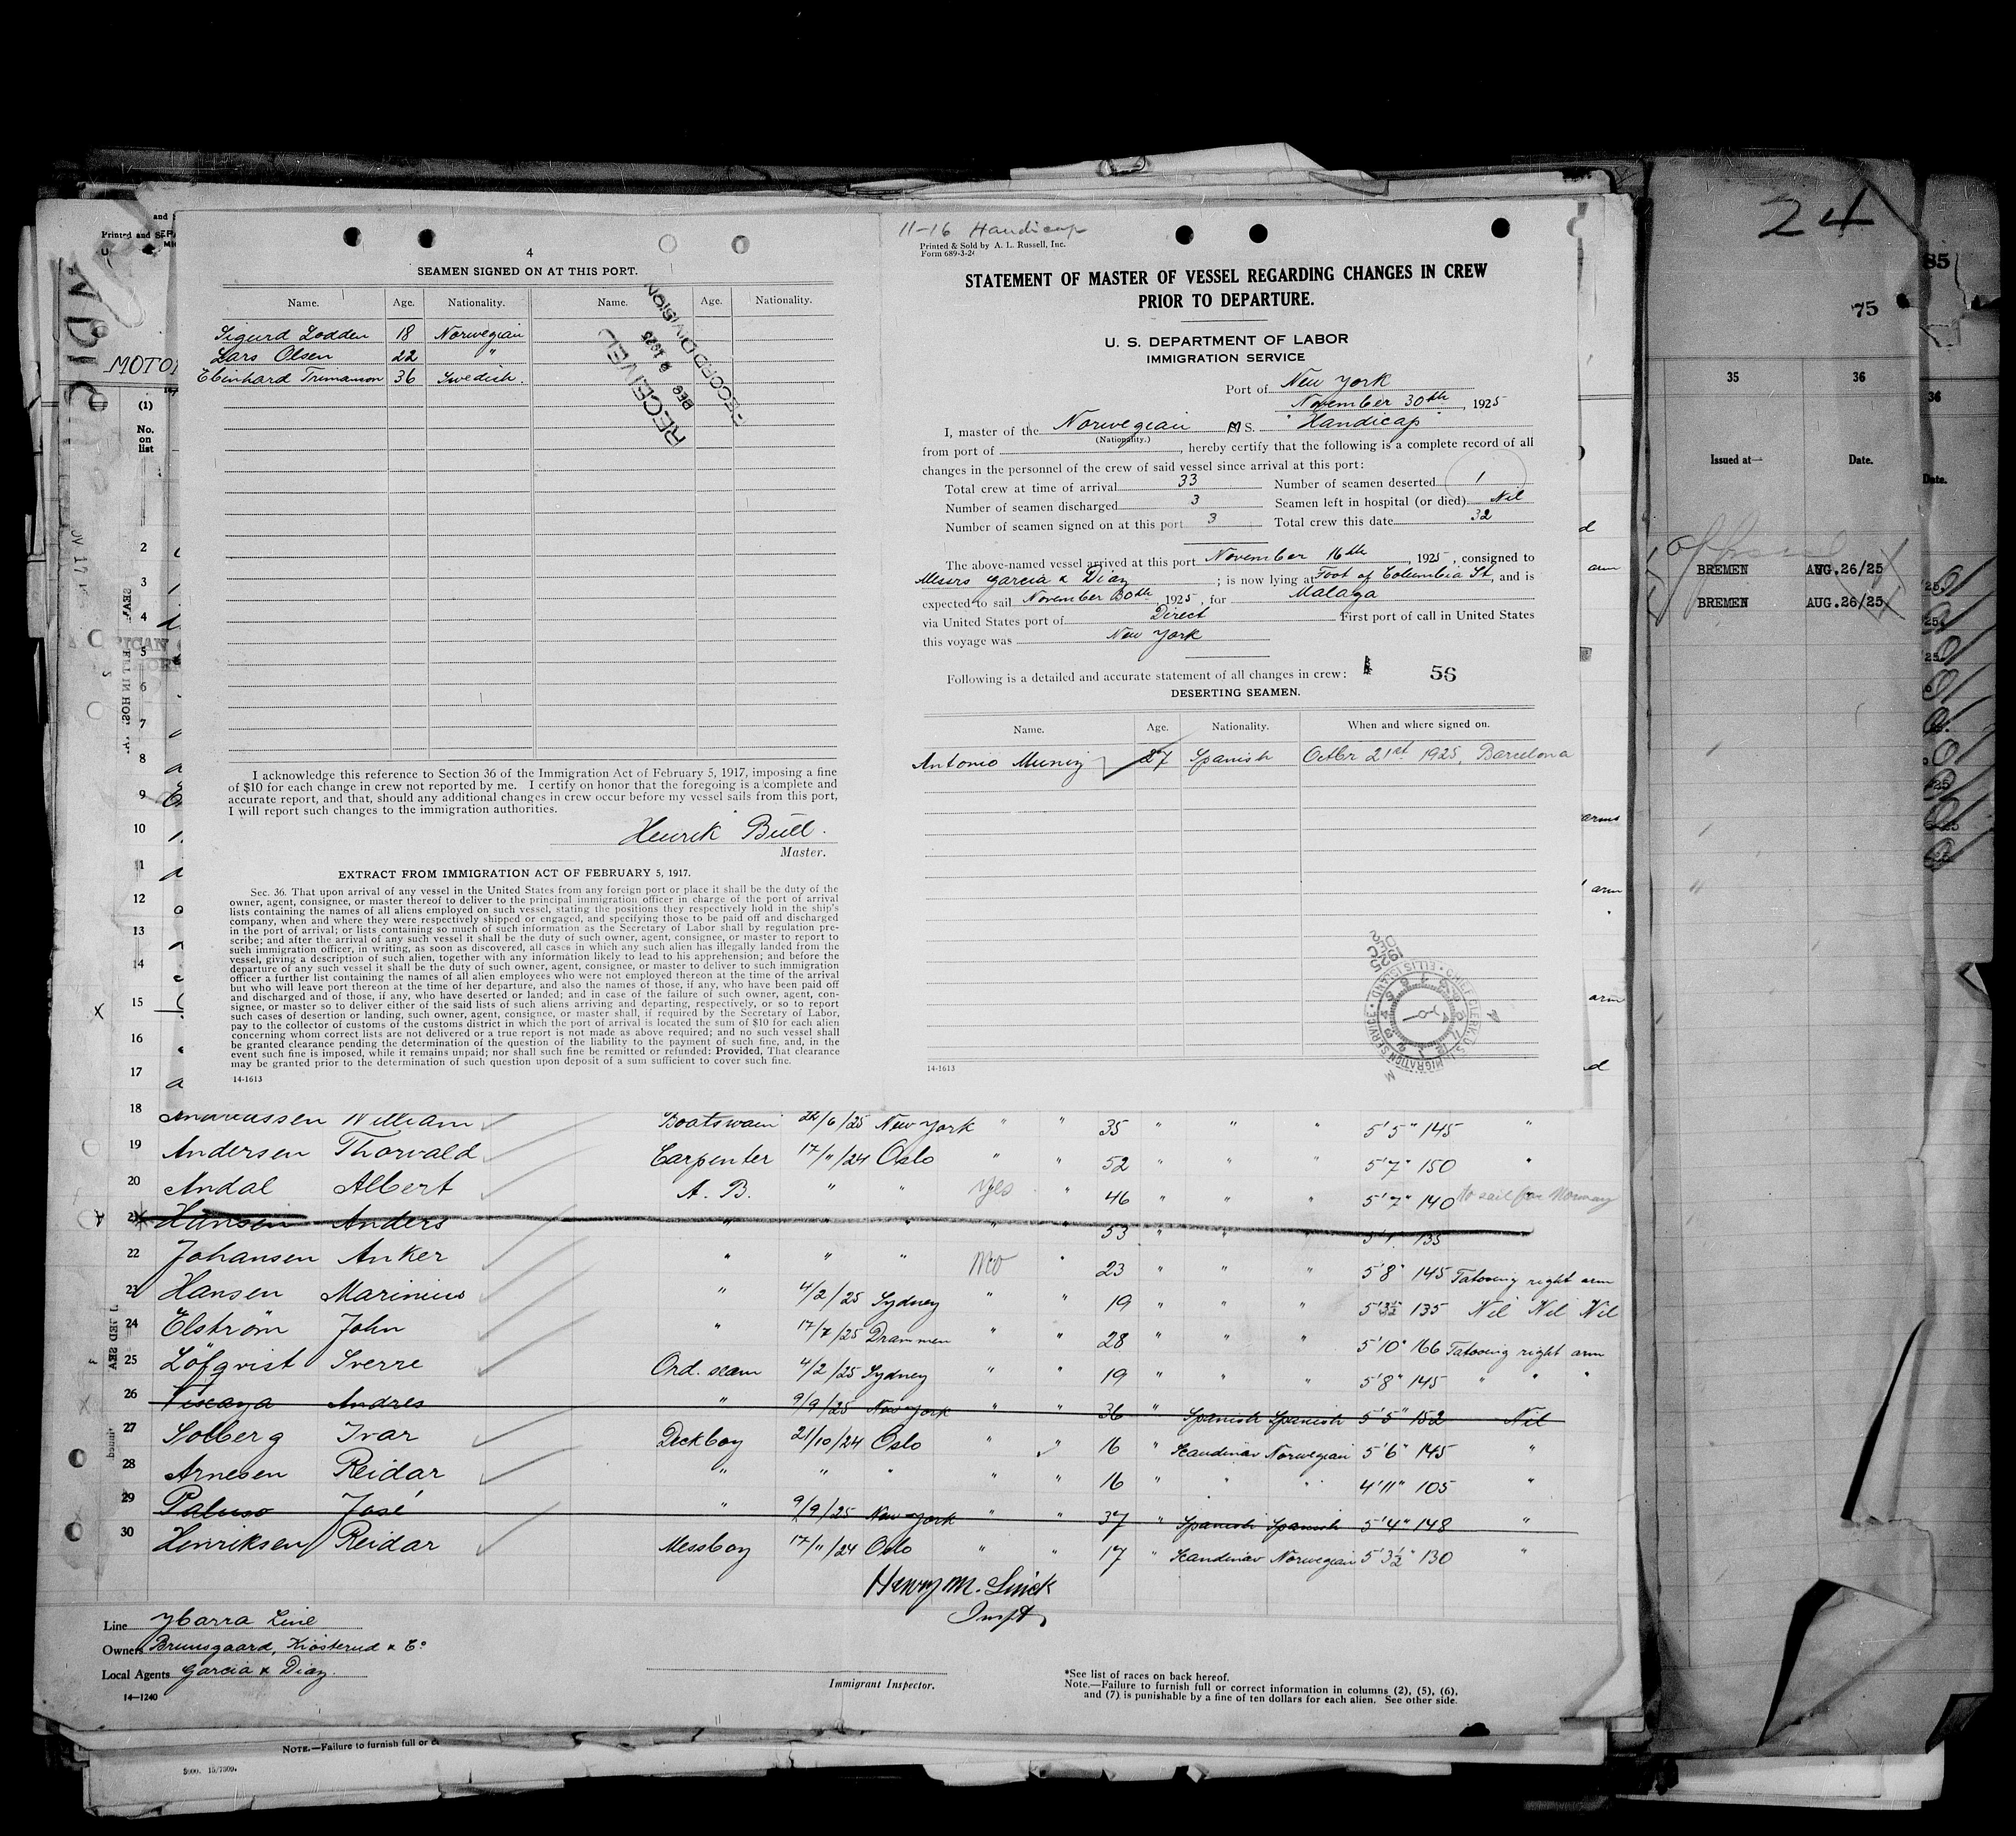 4
SEAMEN SIGNED ON AT THIS PORT.
Name. Age. Nationality. Name. Age. Nationality.
Sigurd Lodden 18 Norwegian
Lars Olsen 22 "
36 Swedish.
RECEIVED
DEC 9 1925
RECORD DIVISION
I acknowledge this reference to Section 36 of the Immigration Act of February 5, 1917, imposing a fine
of $10 for each change in crew not reported by me. I certify on honor that the foregoing is a complete and
accurate report, and that, should any additional changes in crew occur before my vessel sails from this port,
I will report such changes to the immigration authorities.
Henrik Bull.
Master.
EXTRACT FROM IMMIGRATION ACT OF FEBRUARY 5, 1917.
Sec. 36. That upon arrival of any vessel in the United States from any foreign port or place it shall be the duty of the
owner, agent, consignee, or master thereof to deliver to the principal immigration officer in charge of the port of arrival
lists containing the names of all aliens employed on such vessel, stating the positions they respectively hold in the ship's
company, when and where they were respectively shipped or engaged, and specifying those to be paid off and discharged
in the port of arrival; or lists containing so much of such information as the Secretary of Labor shall by regulation pre-
scribe; and after the arrival of any such vessel it shall be the duty of such owner, agent, consignee, or master to report to
such immigration officer, in writing, as soon as discovered, all cases in which any such alien has illegally landed from the
vessel, giving a description of such alien, together with any information likely to lead to his apprehension; and before the
departure of any such vessel it shall be the duty of such owner, agent, consignee, or master to deliver to such immigration
officer a further list containing the names of all alien employees who were not employed thereon at the time of the arrival
but who will leave port thereon at the time of her departure, and also the names of those, if any, who have been paid off
and discharged and of those, if any, who have deserted or landed; and in case of the failure of such owner, agent, con-
signee, or master so to deliver either of the said lists of such aliens arriving and departing, respectively, or so to report
such cases of desertion or landing, such owner, agent, consignee, or master shall, if required by the Secretary of Labor,
pay to the collector of customs of the customs district in which the port of arrival is located the sum of $10 for each alien
concerning whom correct lists are not delivered or a true report is not made as above required; and no such vessel shall
be granted clearance pending the determination of the question of the liability to the payment of such fine, and, in the
event such fine is imposed, while it remains unpaid; nor shall such fine be remitted or refunded: Provided, That clearance
may be granted prior to the determination of such question upon deposit of a sum sufficient to cover such fine.
14-1613
11-16 Handicap
Printed & Sold by A. L. Russell, Inc.
Form 689-3-24
STATEMENT OF MASTER OF VESSEL REGARDING CHANGES IN CREW
PRIOR TO DEPARTURE.
U. S. DEPARTMENT OF LABOR
IMMIGRATION SERVICE
Port of New York
November 30th, 1925
I, master of the Norwegian M S. "Handicap"
(Nationality.)
from port of , hereby certify that the following is a complete record of all
changes in the personnel of the crew of said vessel since arrival at this port:
Total crew at time of arrival 33 Number of seamen deserted 1
Number of seamen discharged 3 Seamen left in hospital (or died) Nil
Number of seamen signed on at this port 3 Total crew this date 32
The above-named vessel arrived at this port November 16th, 1925, consigned to
Messrs Garcia & Diaz ; is now lying at Foot of Columbia St, and is
expected to sail November 30th, 1925, for Malaga
via United States port of Direct First port of call in United States
this voyage was New York
Following is a detailed and accurate statement of all changes in crew: 56
DESERTING SEAMEN.
Name. Age. Nationality. When and where signed on.
Antonio Muniz 27 Spanish Octbr 21st 1925, Barcelona
CHIEF CLERK, U.S. IMMIGRATION SERVICE, ELLIS ISLAND
14-1613
MOTOR
(1)
No.
on
list
2
3
4
5
6
7
8
9
10
11
12
13
14
15
16
17
18 William Boatswain 22/6/25 New York " " 35 " " " 5'5" 145 "
19 Andersen Thorvald Carpenter 17/11/24 Oslo " " 52 " " " 5'7" 150 "
20 Andal Albert A. B. " " Yes " 46 " " " 5'7" 140 to sail for Norway
21 Hansen Anders " " " " " 53 " " " 135 "
22 Johansen Anker " " " No " 23 " " " 5'8" 145 Tatooing right arm
23 Hansen Marinius " 4/2/25 Sydney " " 19 " " " 5'3½" 135 Nil Nil Nil
24 Elström John " 17/7/25 Drammen " " 28 " " " 5'10" 166 Tatooing right arm
25 Löfqvist Sverre Ord. seam 4/2/25 Sydney " " 19 " " " 5'8" 145 " " "
26 Viscaya Andres " 9/9/25 New York " " 36 " Spanish Spanish 5'5" 152 Nil
27 Solberg Ivar Deckboy 21/10/24 Oslo " 16 " Scandinav Norwegian 5'6" 145 "
28 Arnesen Reidar " " " " " 16 " " " 4'11" 105 "
29 José " 9/9/25 New York " " 37 " Spanish Spanish 5'4" 148 "
30 Henriksen Reidar Messboy 17/11/24 Oslo " " 17 " Scandinav Norwegian 5'3½" 130 "
Henry M.
Inspt
Line Ybarra Line
Owners Bruusgaard, Kiøsterud & Co
Local Agents Garcia & Diaz
14—1240
Immigrant Inspector.
*See list of races on back hereof.
Note.—Failure to furnish full or correct information in columns (2), (5), (6),
and (7) is punishable by a fine of ten dollars for each alien. See other side.
NOTE.—Failure to furnish full or
24
85
75
35 36
36
Issued at— Date.
Date.
BREMEN AUG.26/25
BREMEN AUG.26/25